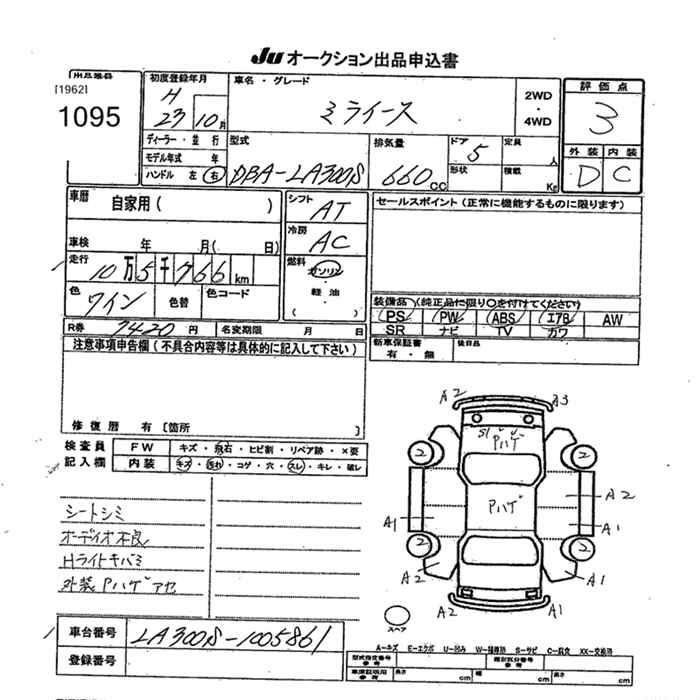 JU オークション出品申込書
出品番号
[1962]
1095
初度登録年月
H
23 10月
車名・グレード
ミライース
2WD
・
4WD
評価点
3
外装 内装
D C
ディーラー・並行
モデル年式 年
ハンドル 左 右
型式
DBA-LA300S
排気量
660cc
ドア
5
形状
定員
人
積載
Kg
車歴
自家用( )
車検 年 月( 日)
走行
10万5千766km
色
ワイン
色替
色コード
シフト
AT
冷房
AC
燃料
ガソリン
・
軽油
・
( )
セールスポイント(正常に機能するものに限ります)
装備品(純正品に限り○を付けてください)
PS PW ABS エアB AW
SR ナビ TV カワ
新車保証書
有・無
後日品
R券 7420円 名変期限 月 日
注意事項申告欄(不具合内容等は具体的に記入して下さい)
修復歴 有〔箇所 〕
検査員
記入欄
FW キズ・飛石・ヒビ割・リペア跡・×要
内装 キズ・汚れ・コゲ・穴・スレ・キレ・破レ
シートシミ
オーディオ不良
Hライトキバミ
外装Pハゲアセ
A2 A3
S1 Pハゲ
2 2
Pハゲ
A2
A1 A1
2 2
A2 A1
A2 A1
スペア
A-キズ E-エクボ U-凹み W-補修跡 S-サビ C-腐食 XX-交換済
車台番号 LA300S-1005861
登録番号
型式指定番号
参考
類別区分番号
参考
車庫証明用
参考
長さ cm 幅 cm 高さ cm